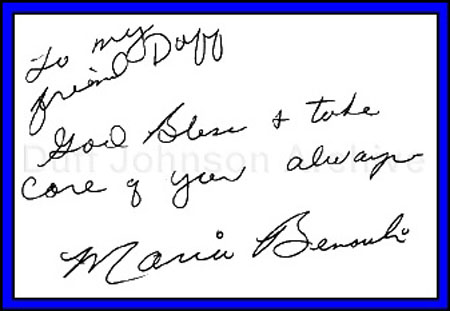 To my
friend Duff
God Bless & take
care of you always
Duff Johnson Archive
Maria